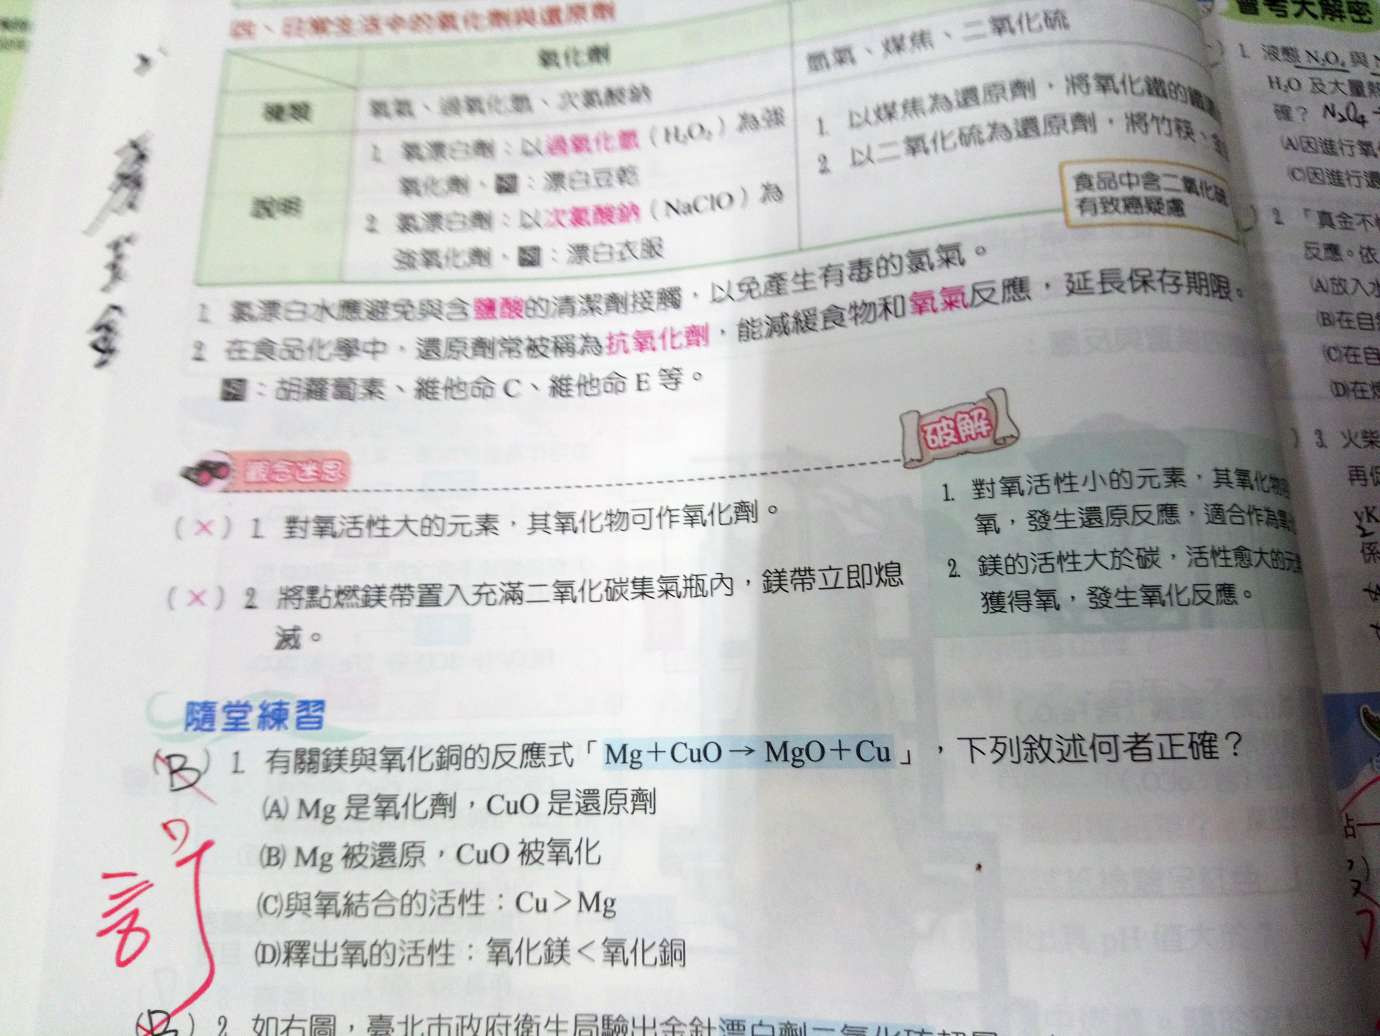 四、日常生活中的氧化劑與還原劑
氧化劑
種類
氧氣、過氧化氫、次氯酸鈉
氫氣、煤焦、二氧化硫
說明
1. 氧漂白劑：以過氧化氫（H₂O₂）為強
氧化劑、例：漂白豆乾
2. 氯漂白劑：以次氯酸鈉（NaClO）為
強氧化劑、例：漂白衣服
1. 以煤焦為還原劑，將氧化鐵的鐵
2. 以二氧化硫為還原劑，將竹筷、
食品中含二氧化硫
有致癌疑慮
1. 氯漂白水應避免與含鹽酸的清潔劑接觸，以免產生有毒的氯氣。
2. 在食品化學中，還原劑常被稱為抗氧化劑，能減緩食物和氧氣反應，延長保存期限。
例：胡蘿蔔素、維他命 C、維他命 E 等。
觀念迷思
破解
（×）1. 對氧活性大的元素，其氧化物可作氧化劑。
（×）2. 將點燃鎂帶置入充滿二氧化碳集氣瓶內，鎂帶立即熄
滅。
1. 對氧活性小的元素，其氧化物
氧，發生還原反應，適合作為
2. 鎂的活性大於碳，活性愈大的元
獲得氧，發生氧化反應。
隨堂練習
（B）1. 有關鎂與氧化銅的反應式「Mg＋CuO → MgO＋Cu」，下列敘述何者正確？
(A) Mg 是氧化劑，CuO 是還原劑
(B) Mg 被還原，CuO 被氧化
(C)與氧結合的活性：Cu＞Mg
(D)釋出氧的活性：氧化鎂＜氧化銅
訂
（B）2. 如右圖，臺北市政府衛生局驗出金針漂白劑二氧化硫超
會考大解密
1. 液態 N₂O₄ 與
H₂O 及大量熱
確？ N₂O₄
(A)因進行氧
(C)因進行還
2. 「真金不
反應。依
(A)放入水
(B)在自
(C)在自
(D)在
3. 火柴
再
係